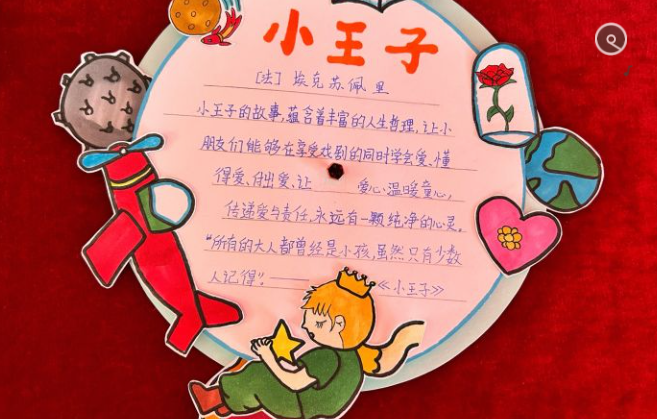 小王子
[法] 埃克苏佩里
小王子的故事,蕴含着丰富的人生哲理,让小
朋友们能够在享受戏剧的同时学会爱、懂
得爱、付出爱、让 爱心温暖童心,
传递爱与责任,永远有一颗纯净的心灵。
“所有的大人都曾经是小孩,虽然只有少数
人记得”. ——《小王子》